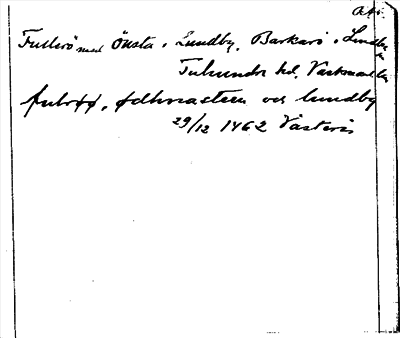 Fullerö med Önsta, Lundby, Barkarö, Lundby
Tuhundra hd, Västmanland
fulröö, ødhnasteen och lundby
29/12 1462 Västerås